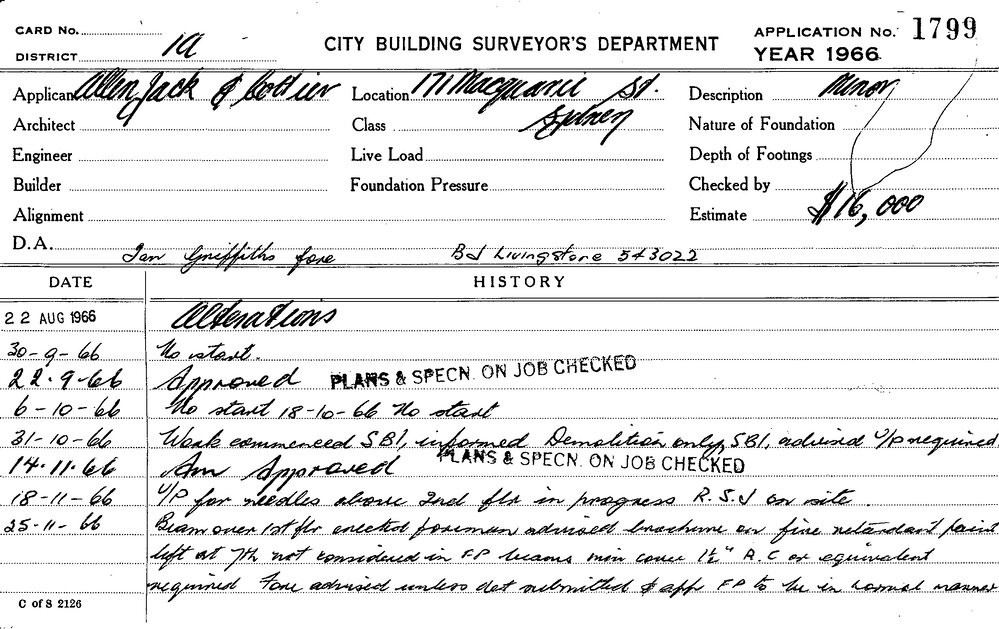 CARD No.
DISTRICT 1a
CITY BUILDING SURVEYOR'S DEPARTMENT
APPLICATION No. 1799
YEAR 1966
Applicant Allen Jack & Cottier
Location 171 Macquarie St.
Sydney
Description Minor
Architect
Class
Nature of Foundation
Engineer
Live Load
Depth of Footings
Builder
Foundation Pressure
Checked by
Alignment
Estimate $16,000
D.A.
Ian Griffiths fore B J Livingstone 543022
DATE HISTORY
22 AUG 1966 Alterations
30-9-66 No start.
22.9.66 Approved PLANS & SPECN. ON JOB CHECKED
6-10-66 No start 18-10-66 No start
31-10-66 Work commenced SBI, informed Demolition only, SBI, advised U/P required
14.11.66 Am Approved PLANS & SPECN. ON JOB CHECKED
18-11-66 U/P for needles above 2nd flr in progress R.S.J on site
25-11-66 Beam over 1st flr erected foreman advised brochure on fire retardant paint
left at 7th not considered in FP beams min cover 1½" R.C or equivalent
required Fore advised unless det submitted & app FP to be in normal manner
C of S 2126